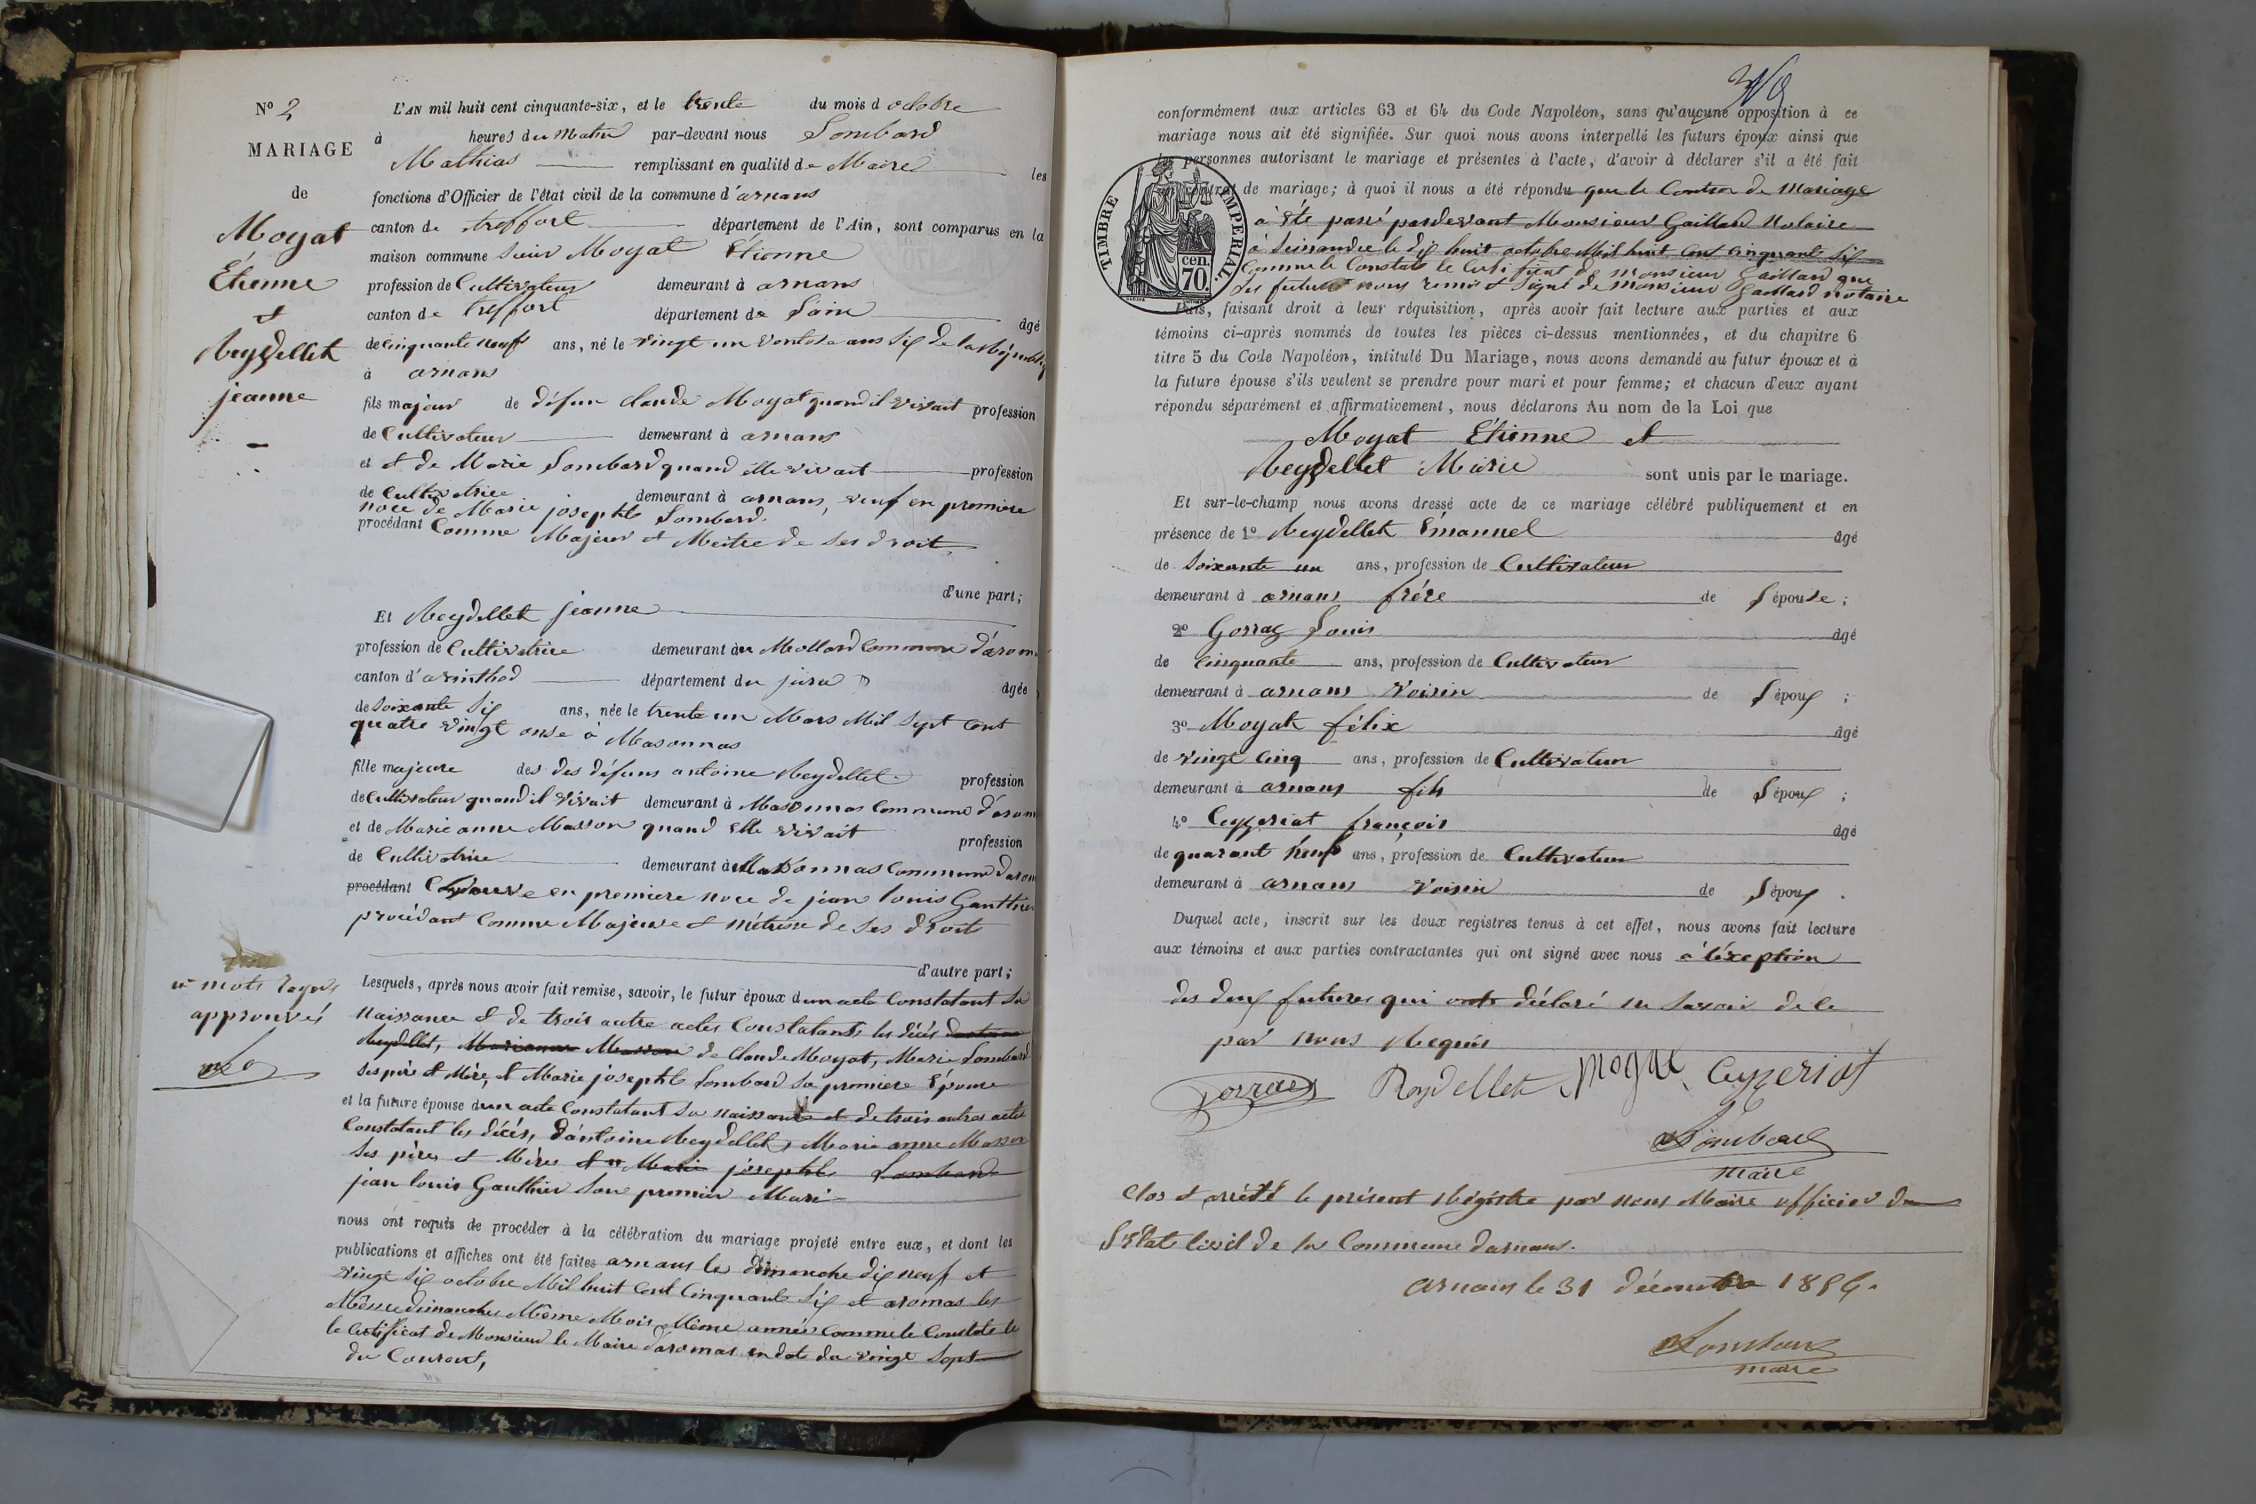 N° 2
MARIAGE
de
Moyat
Étienne
et
Reydellet
jeanne
11 mots rayés
approuvés
L'AN mil huit cent cinquante-six, et le trente du mois d octobre
à heures du Matin par-devant nous Lombard
Mathias remplissant en qualité de Maire les
fonctions d'Officier de l'état civil de la commune d'arnans
canton de treffort département de l'Ain, sont comparus en la
maison commune sieur Moyat Étienne
profession de Cultivateur demeurant à arnans
canton de treffort département de Lain âgé
de cinquante neuf ans, né le vingt un ventose ans six de la Républiq
à arnans
fils majeur de défun claude Moyat quand il vivait profession
de Cultivateur demeurant à arnans
et et de Marie Lombard quand elle vivait profession
de Cultivatrice demeurant à arnans, veuf en premiere
noce de Marie josephte Lombard.
procédant Comme Majeur et Maitre de ses droit
d'une part;
Et Reydellet jeanne
profession de Cultivatrice demeurant au Mollard Commune d'arom
canton d'arinthod département du jura âgée
de soixante six ans, née le trente un Mars Mil Sept Cent
quatre vingt onse à Masonnas
fille majeure des des défuns antoine Reydellet profession
de Cultivateur quand il vivait demeurant à Masonnas Commune d'arom
et de Marie anne Masson quand elle vivait profession
de Cultivatrice demeurant à Masonnas Commune darom
procédant veuve en premiere noce de jean louis Gauthier
procédant Comme Majeure et métresse de ses droits
d'autre part;
Lesquels, après nous avoir fait remise, savoir, le futur époux d'un acte Constatant sa
Naissance et de trois autre actes Constatants les décès dantoine
Reydellet, Marianne Masson de Claude Moyat, Marie Lombard
ses père et Mère, et Marie josephte Lombard sa premiere Épouse
et la future épouse dun acte Constatant sa naissance et de trois autres actes
Constatant les décès, d'antoine Reydellet, Marie anne Masson
ses pères et Mères et Marie josephte Lombard
jean louis Gauthier Son premier Mari
nous ont requis de procéder à la célébration du mariage projeté entre eux, et dont les
publications et affiches ont été faites arnans les dimanche dix neuf et
vingt six octobre Mil huit Cent Cinquante Six et aromas les
Même dimanches Même Mois Même année comme le Constate le
le Certificat de Monsieur le Maire d'aromas en date du vingt Sept
du Courant,
conformément aux articles 63 et 64 du Code Napoléon, sans qu'aucune opposition à ce
mariage nous ait été signifiée. Sur quoi nous avons interpellé les futurs époux ainsi que
les personnes autorisant le mariage et présentes à l'acte, d'avoir à déclarer s'il a été fait
un contrat de mariage; à quoi il nous a été répondu que le Contra de Mariage
a été passé pardevant Monsieur Gaillard Notaire
a Simandre le dix huit octobre Mil huit Cent Cinquante Six
Comme le Constate le Certificat de Monsieur Gaillard que
les futurs nous remis et Signé de Monsieur Gaillard notaire
TIMBRE IMPERIAL
cen. 70.
Puis, faisant droit à leur réquisition, après avoir fait lecture aux parties et aux
témoins ci-après nommés de toutes les pièces ci-dessus mentionnées, et du chapitre 6
titre 5 du Code Napoléon, intitulé Du Mariage, nous avons demandé au futur époux et à
la future épouse s'ils veulent se prendre pour mari et pour femme; et chacun d'eux ayant
répondu séparément et affirmativement, nous déclarons Au nom de la Loi que
Moyat Étienne et
Reydellet Marie sont unis par le mariage.
Et sur-le-champ nous avons dressé acte de ce mariage célébré publiquement et en
présence de 1° Reydellet Émannel âgé
de Soixante un ans, profession de Cultivateur
demeurant à arnans frére de l'épouse;
2° Gorraz Louis âgé
de cinquante ans, profession de Cultivateur
demeurant à arnans voisin de l'époux;
3° Moyat félix âgé
de vingt Cinq ans, profession de Cultivateur
demeurant à arnans fils de l'époux;
4° Ceyzeriat françois âgé
de quarant neuf ans, profession de Cultivateur
demeurant à arnans voisin de l'époux.
Duquel acte, inscrit sur les deux registres tenus à cet effet, nous avons fait lecture
aux témoins et aux parties contractantes qui ont signé avec nous à l'éxception
des deux futures qui onts déclaré ne savoir de ce
par nous Requis
Gorraz Reydellet Moyat Ceyzeriat
Lombard
maire
Clos et arrêté le présent Régistre par nous Maire officier de
L'État Civil de la Commune darnans.
arnans le 31 décembre 1856.
Lombard
maire